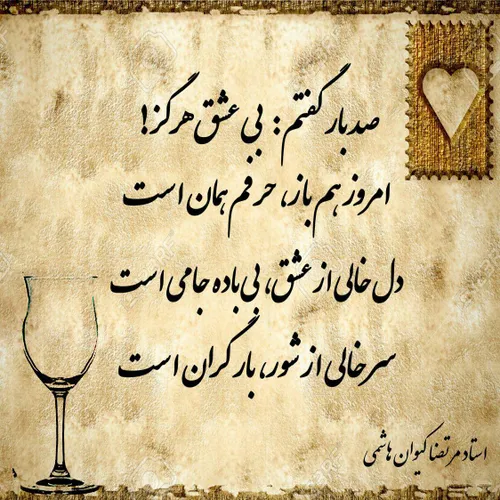 صد بار گفتم : بی عشق هرگز!
امروز هم باز، حرفم همان است
دل خالی از عشق، بی باده جامی است
سر خالی از شور، بار گران است
استاد مرتضا کیوان هاشمی